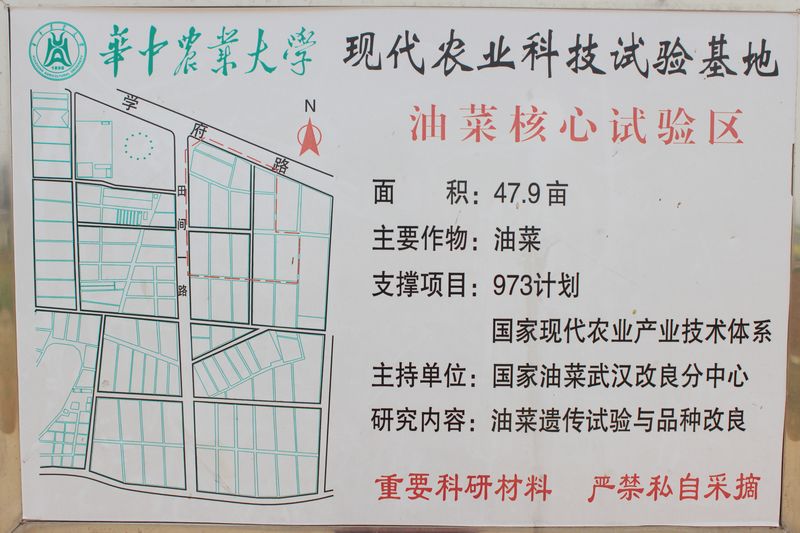 華中農業大学 现代农业科技试验基地
油菜核心试验区
学府路
N
田间一路
面 积：47.9亩
主要作物：油菜
支撑项目：973计划
国家现代农业产业技术体系
主持单位：国家油菜武汉改良分中心
研究内容：油菜遗传试验与品种改良
重要科研材料 严禁私自采摘